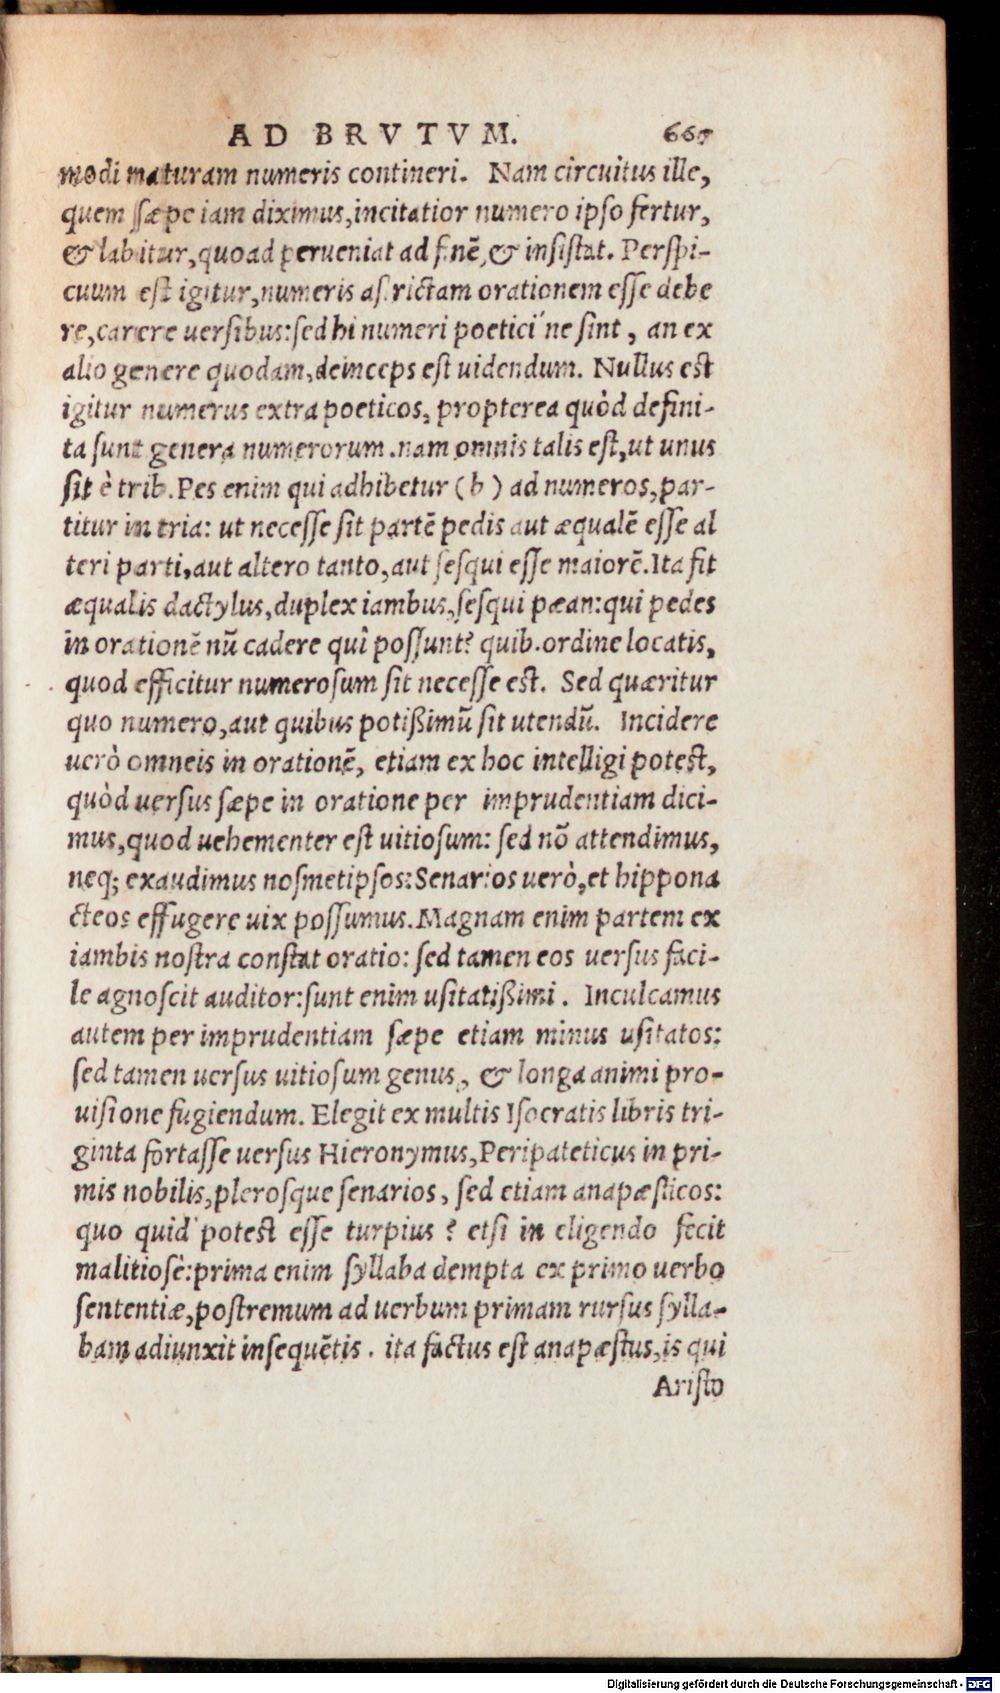 AD BRVTVM. 667
modi maturam numeris contineri. Nam circuitus ille,
quem sæpe iam diximus, incitatior numero ipso fertur,
& labitur, quoad perueniat ad finē, & insistat. Perspi-
cuum est igitur, numeris astrictam orationem esse debe
re, carere uersibus: sed hi numeri poetici ne sint, an ex
alio genere quodam, deinceps est uidendum. Nullus est
igitur numerus extra poeticos, propterea quòd defini-
ta sunt genera numerorum. nam omnis talis est, ut unus
sit è trib. Pes enim qui adhibetur (b) ad numeros, par-
titur in tria: ut necesse sit partē pedis aut æqualē esse al
teri parti, aut altero tanto, aut sesqui esse maiorē. Ita fit
æqualis dactylus, duplex iambus, sesqui pæan: qui pedes
in orationē nū cadere quî possunt? quib. ordine locatis,
quod efficitur numerosum sit necesse est. Sed quæritur
quo numero, aut quibus potißimū sit utendū. Incidere
uerò omneis in orationē, etiam ex hoc intelligi potest,
quòd uersus sæpe in oratione per imprudentiam dici-
mus, quod uehementer est uitiosum: sed nō attendimus,
neq; exaudimus nosmetipsos: Senarios uerò, et hippona
cteos effugere uix possumus. Magnam enim partem ex
iambis nostra constat oratio: sed tamen eos uersus faci-
le agnoscit auditor: sunt enim usitatißimi. Inculcamus
autem per imprudentiam sæpe etiam minus usitatos:
sed tamen uersus uitiosum genus, & longa animi pro-
uisione fugiendum. Elegit ex multis Isocratis libris tri-
ginta fortasse uersus Hieronymus, Peripateticus in pri-
mis nobilis, plerosque senarios, sed etiam anapæsticos:
quo quid potest esse turpius? etsi in eligendo fecit
malitiosè: prima enim syllaba dempta ex primo uerbo
sententiæ, postremum ad uerbum primam rursus sylla-
bam adiunxit insequētis. ita factus est anapæstus, is qui
Aristo
Digitalisierung gefördert durch die Deutsche Forschungsgemeinschaft - DFG